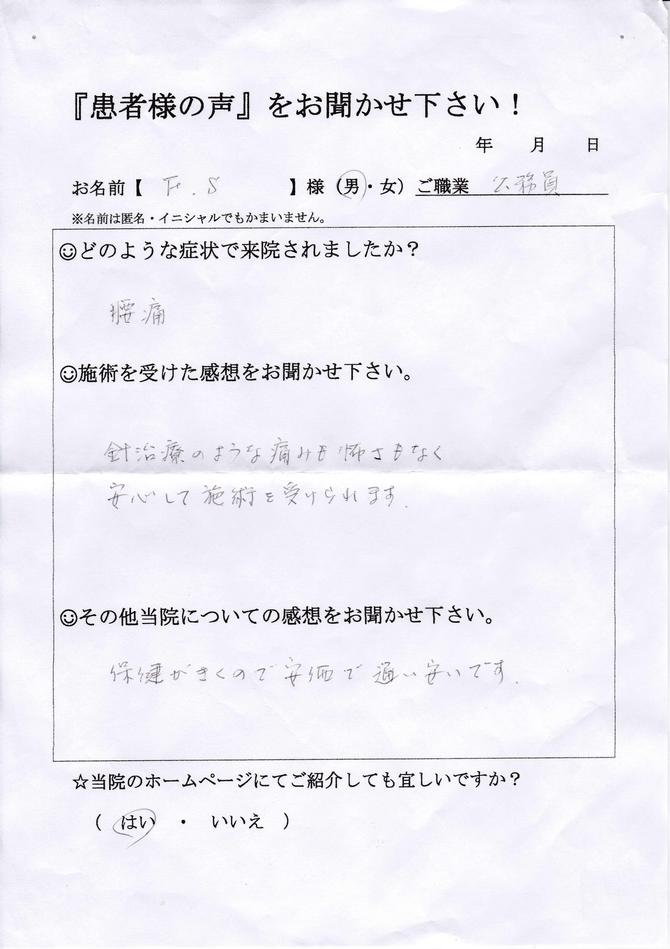 『患者様の声』をお聞かせ下さい！
年 月 日
お名前【 F.S 】様（男・女）ご職業 公務員
※名前は匿名・イニシャルでもかまいません。
☺どのような症状で来院されましたか？
腰痛
☺施術を受けた感想をお聞かせ下さい。
針治療のような痛みも怖さもなく
安心して施術を受けられます.
☺その他当院についての感想をお聞かせ下さい。
保健がきくので安価で通い安いです.
☆当院のホームページにてご紹介しても宜しいですか？
（ はい ・ いいえ ）